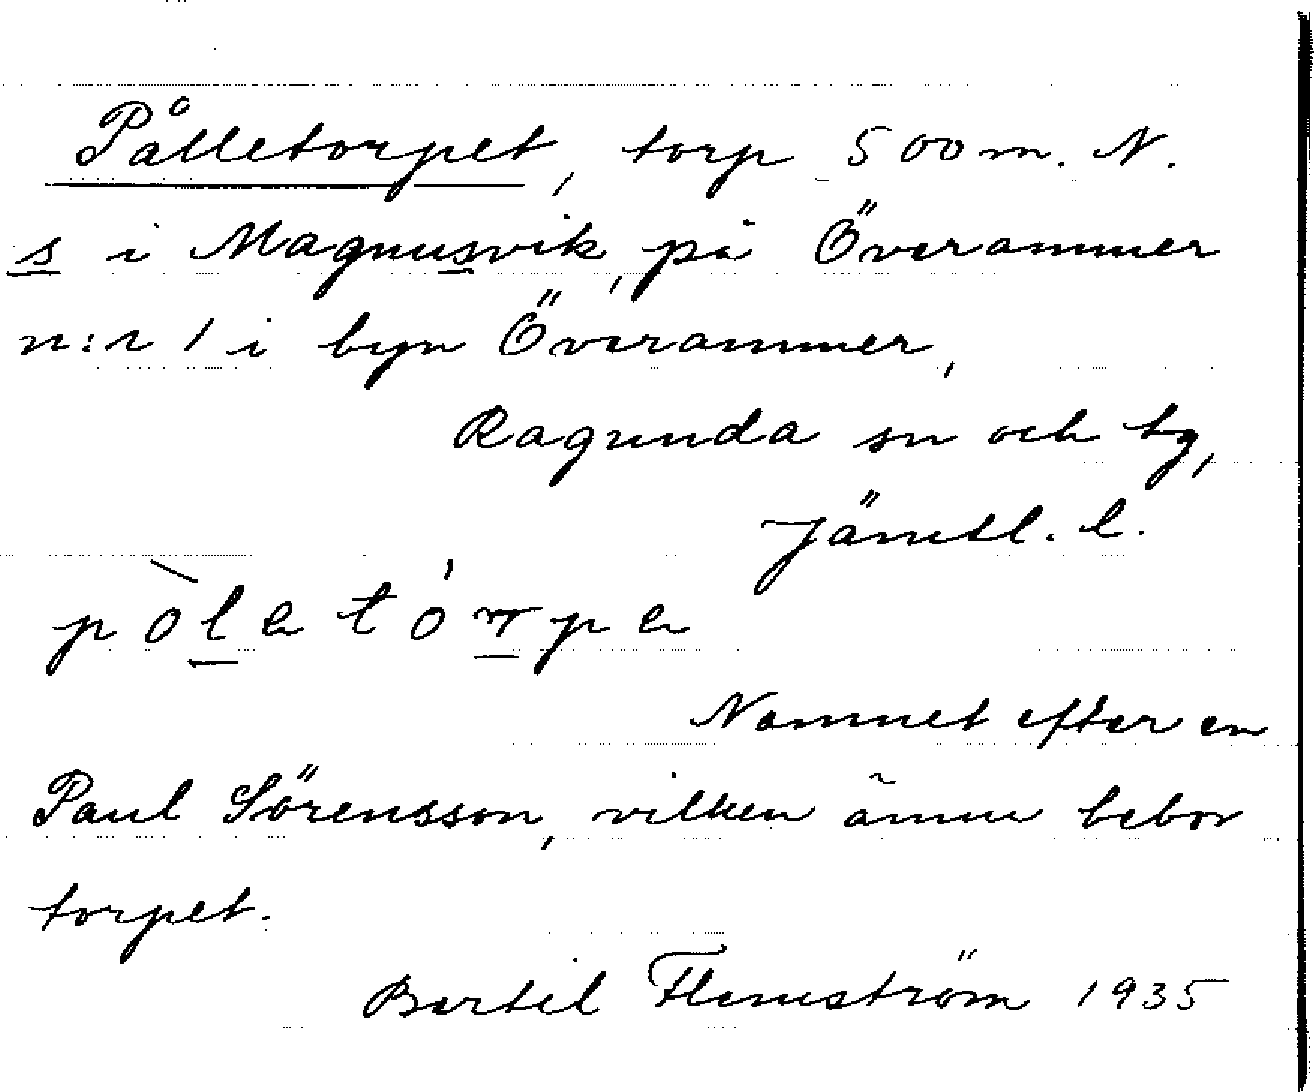 Pålletorpet, torp 500 m. N.
s i Magnusvik, på Överammer
n:r 1 i byn Överammer,
Ragunda sn och tg,
Jämtl. l.
pòletórpe
Namnet efter en
Paul Sörensson, vilken ännu bebor
torpet.
Bertil Flemström 1935